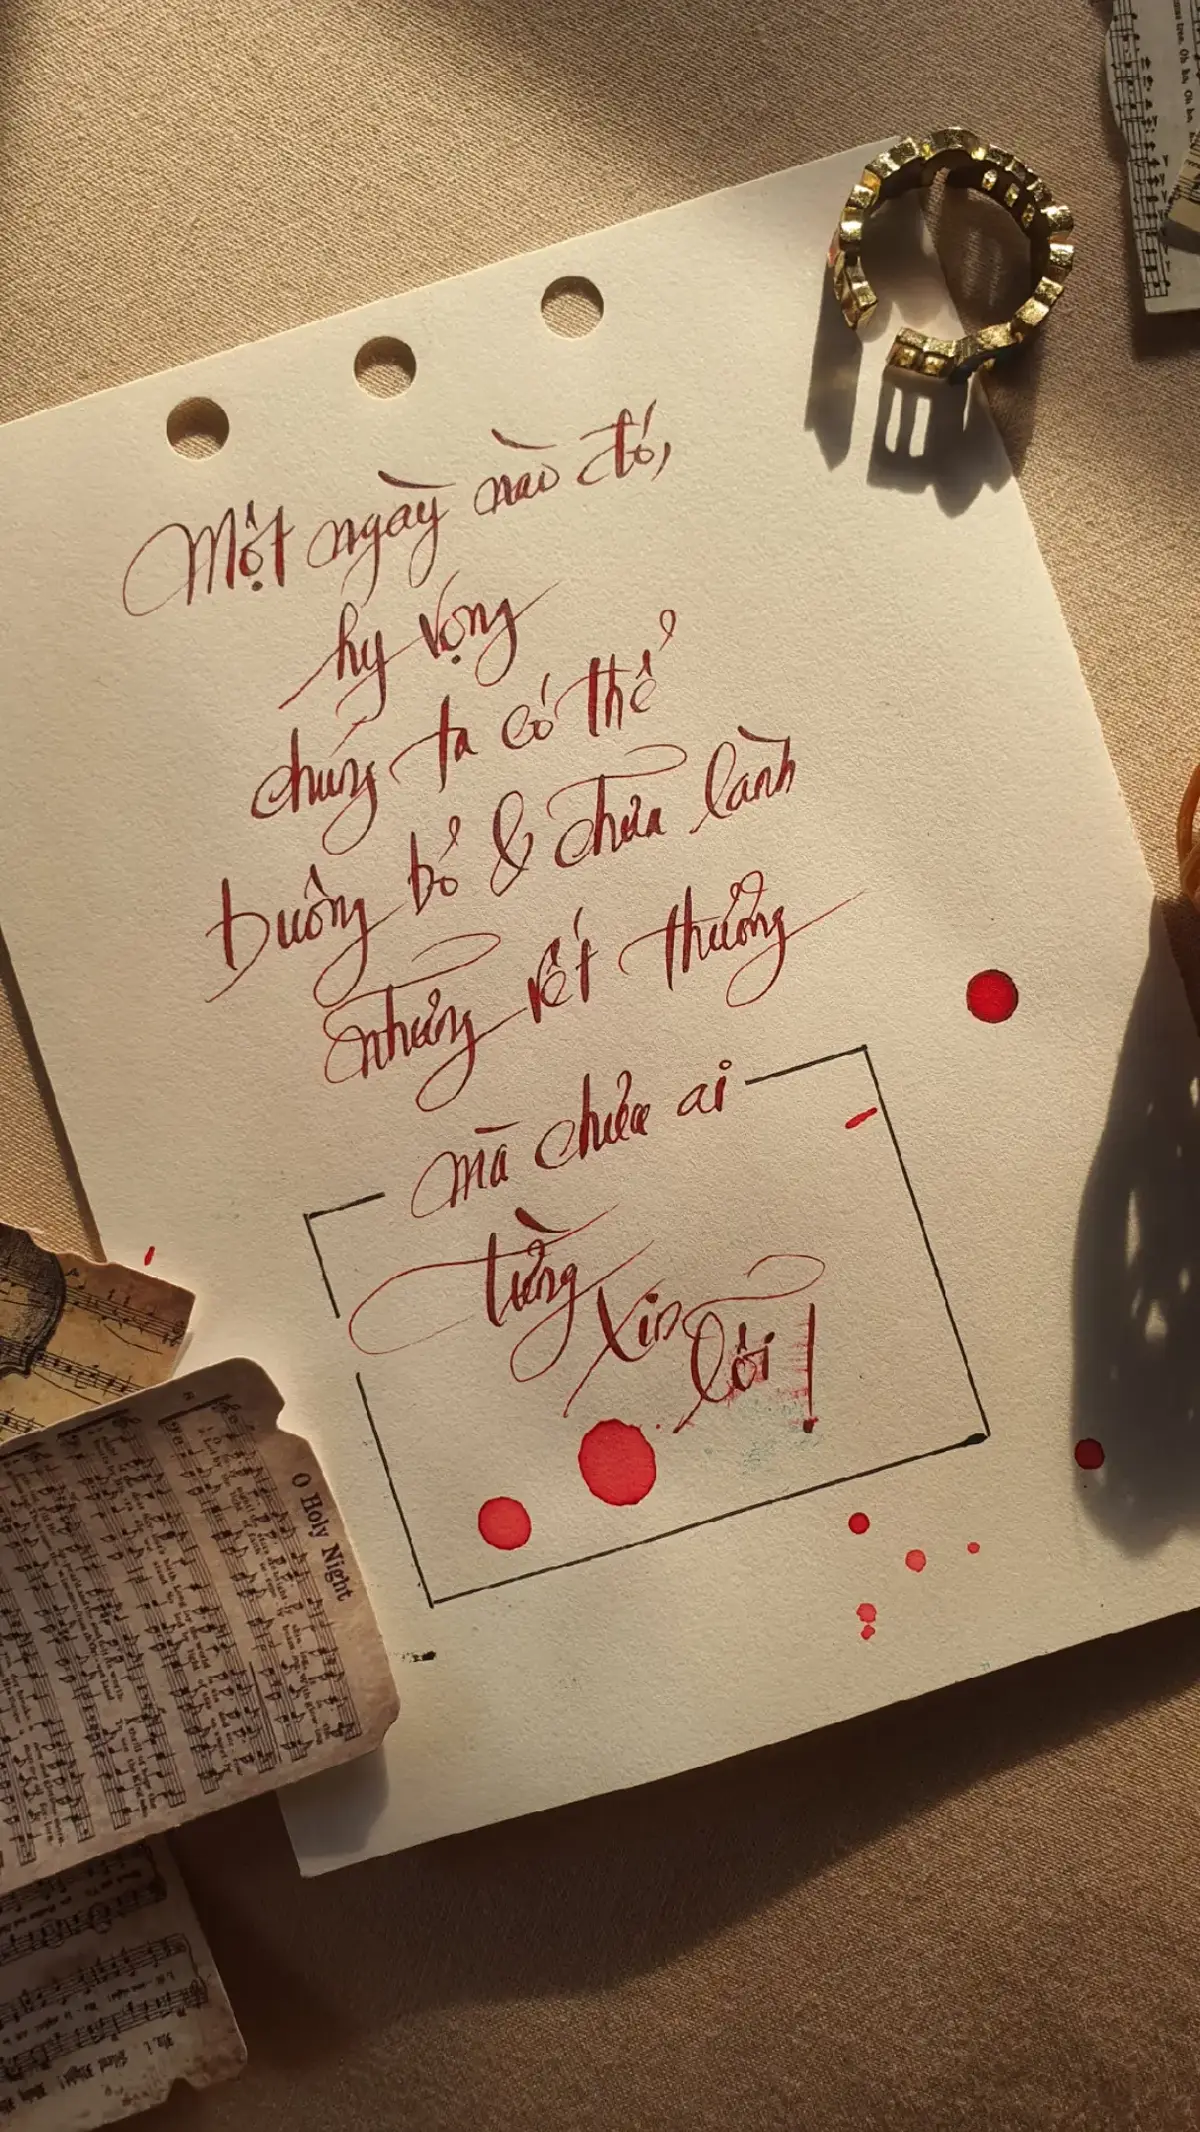 Một ngày nào đó,
hy vọng
chúng ta có thể
buông bỏ & chữa lành
những vết thương
mà chưa ai
từng xin
lỗi!
O Holy Night